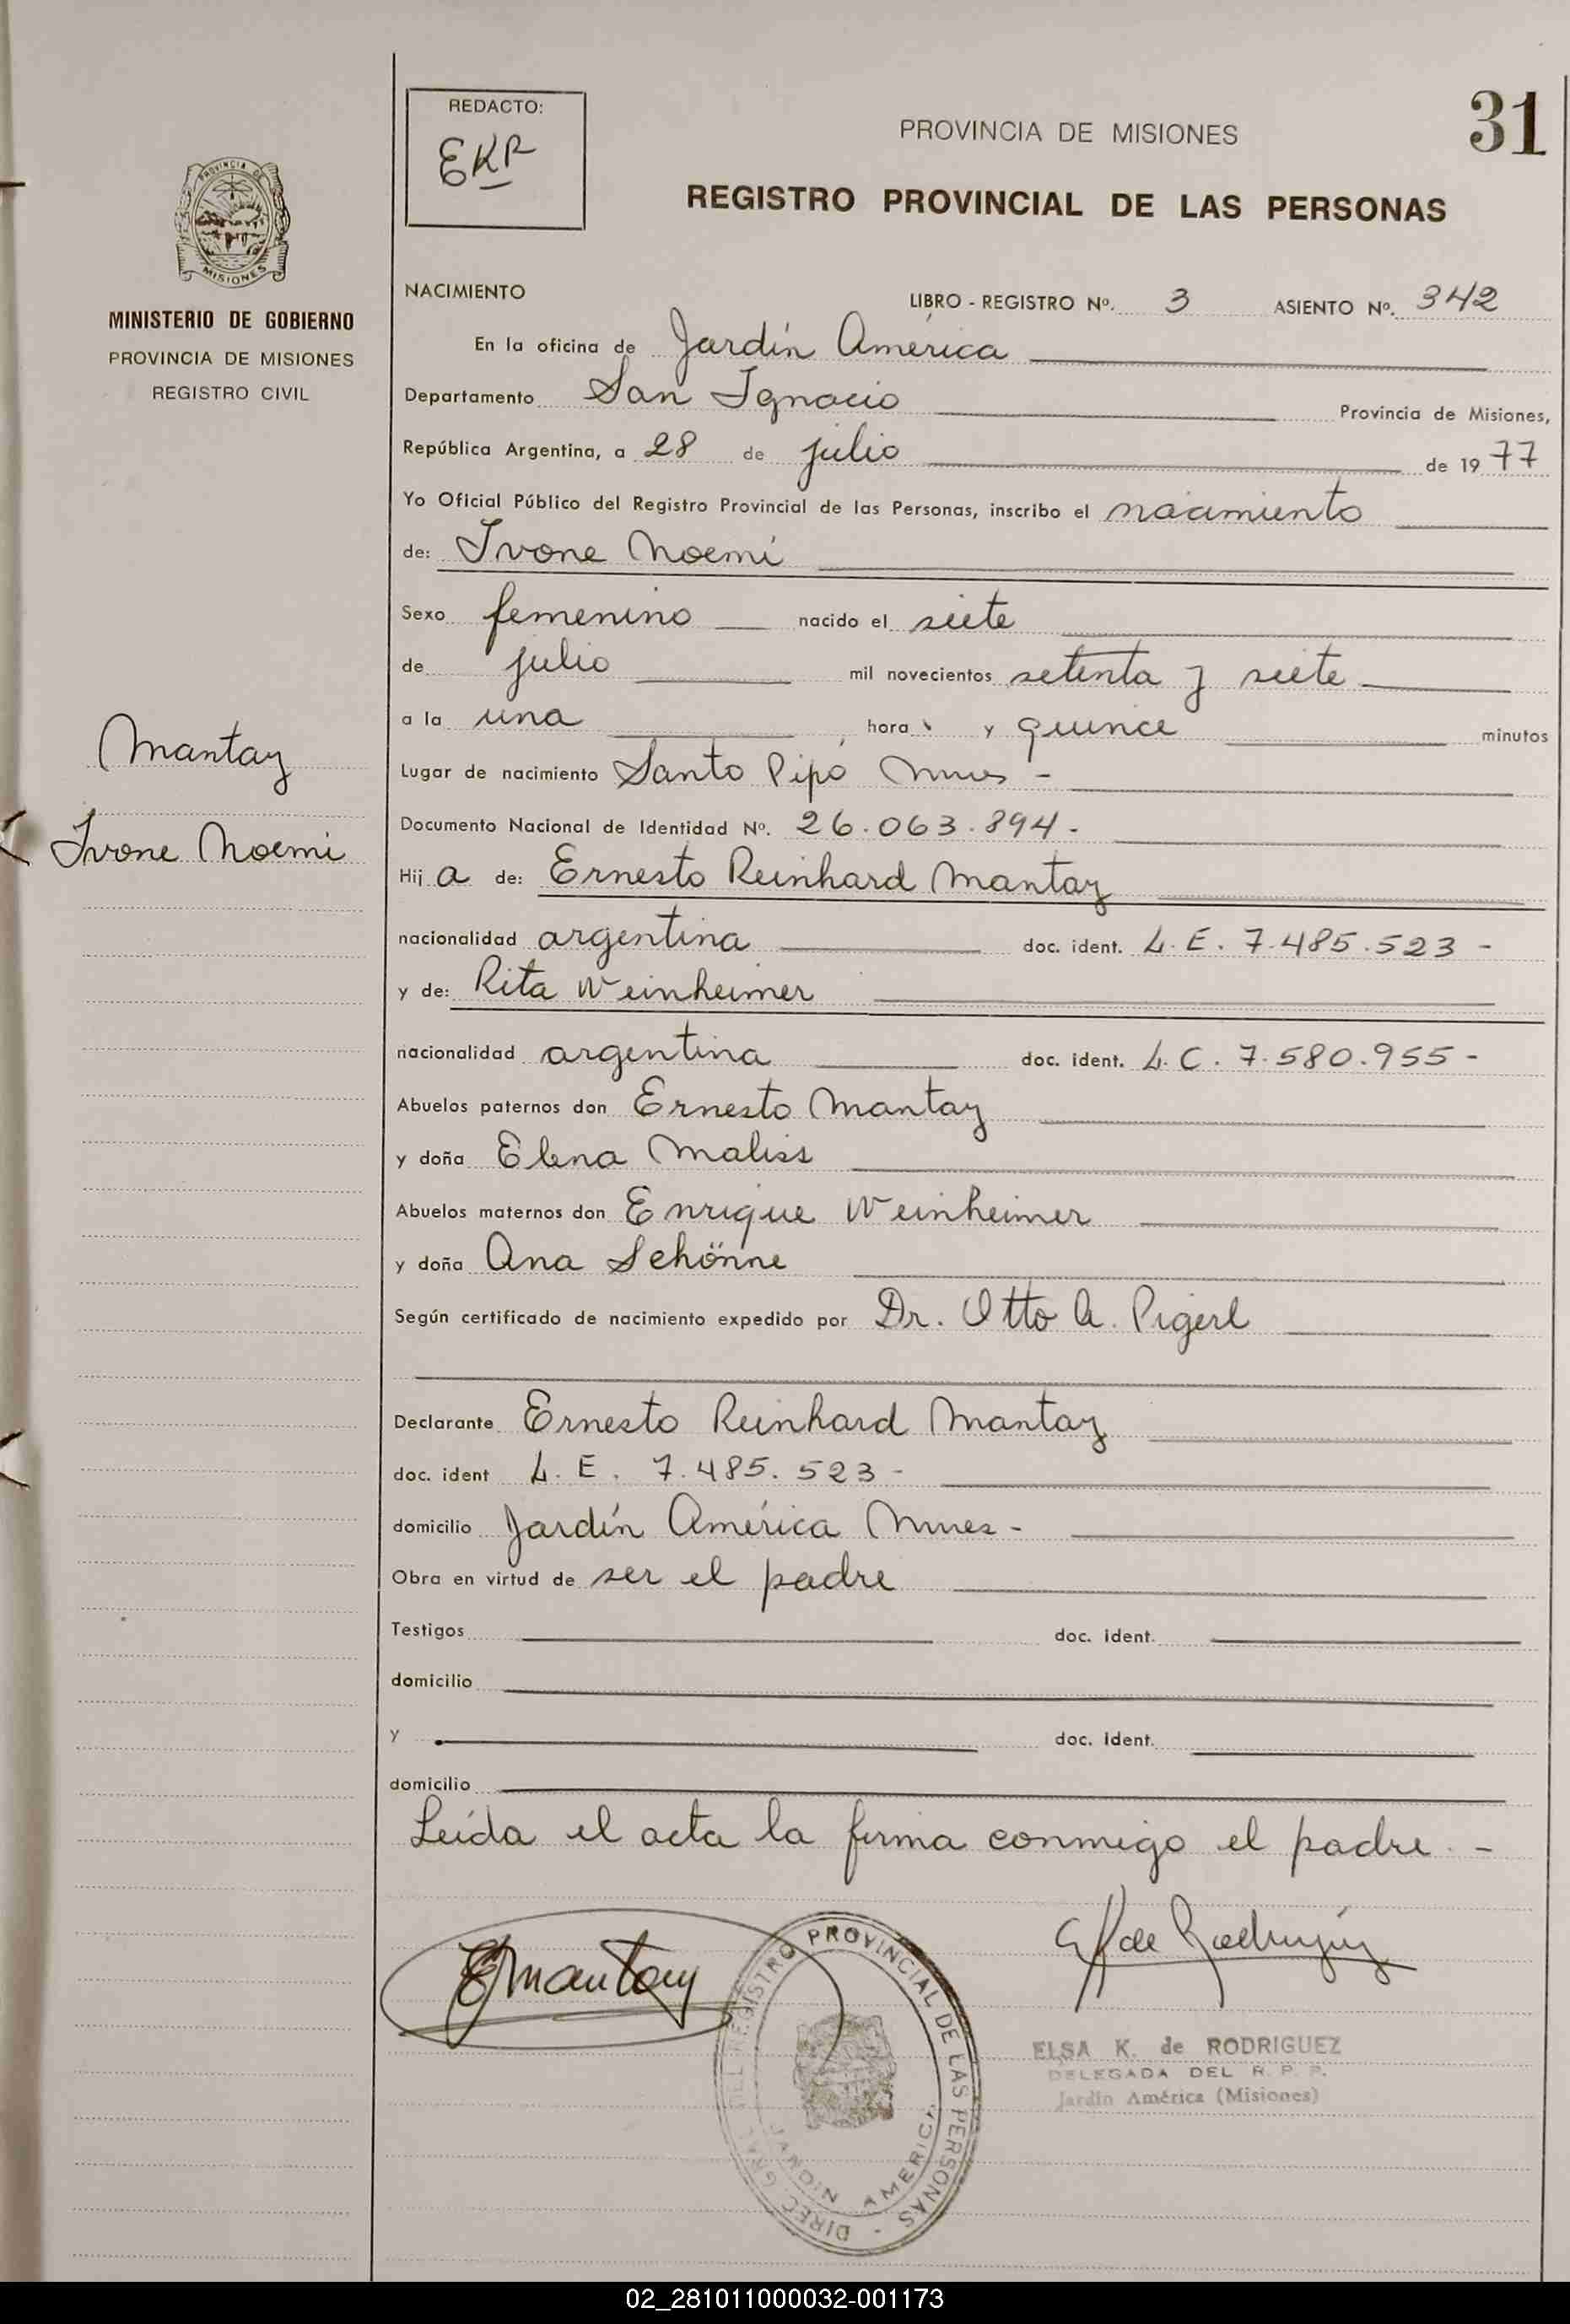 REDACTO:
EKR
PROVINCIA DE MISIONES
31
REGISTRO PROVINCIAL DE LAS PERSONAS
PROVINCIA DE
MISIONES
MINISTERIO DE GOBIERNO
PROVINCIA DE MISIONES
REGISTRO CIVIL
Mantay
Ivone Noemi
NACIMIENTO
LIBRO - REGISTRO Nº. 3 ASIENTO Nº. 342
En la oficina de Jardín América
Departamento San Ignacio Provincia de Misiones,
República Argentina, a 28 de julio de 1977
Yo Oficial Público del Registro Provincial de las Personas, inscribo el nacimiento
de: Ivone Noemi
Sexo femenino nacido el siete
de julio mil novecientos setenta y siete
a la una hora y quince minutos
Lugar de nacimiento Santo Pipó Mnes -
Documento Nacional de Identidad Nº. 26.063.894.
Hij a de: Ernesto Reinhard Mantay
nacionalidad argentina doc. ident. L.E. 7.485.523 -
y de: Rita Weinheimer
nacionalidad argentina doc. ident. L.C. 7.580.955 -
Abuelos paternos don Ernesto Mantay
y doña Elena Maliss
Abuelos maternos don Enrique Weinheimer
y doña Ana Schönne
Según certificado de nacimiento expedido por Dr. Otto A. Pigerl
Declarante Ernesto Reinhard Mantay
doc. ident L.E. 7.485.523 -
domicilio Jardín América Mnes -
Obra en virtud de ser el padre
Testigos doc. ident.
domicilio
y doc. Ident.
domicilio
Leída el acta la firma conmigo el padre. -
EMantay
EK de Rodríguez
DIREC. GRAL. DEL REGISTRO PROVINCIAL DE LAS PERSONAS -
JARDIN AMERICA
ELSA K. de RODRIGUEZ
DELEGADA DEL R. P. P.
Jardín América (Misiones)
02_281011000032-001173